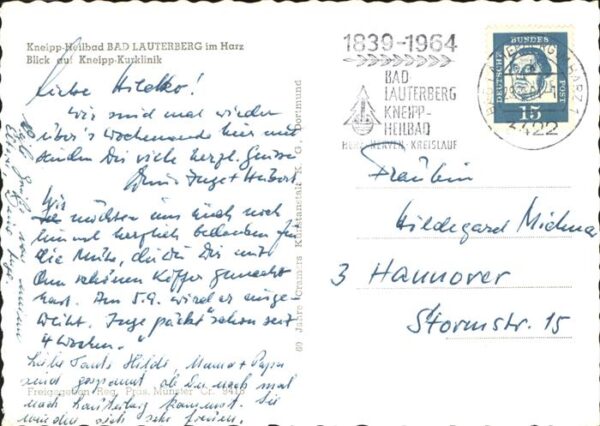 Kneipp-Heilbad BAD LAUTERBERG im Harz
Blick auf Kneipp-Kurklinik
Liebe Hildko!
Wir sind mal wieder
über's Wochenend hier und
senden Dir viele herzl. Grüsse
Inge + Hubert
Wir möchten uns auch noch
einmal herzlich bedanken für
die Mühe, die Du Dir mit
dem schönen Koffer gemacht
hast. Am 5.9. wird er einge-
weiht. Inge packt schon seit
4 Wochen."
Liebe Tante Hilde, Mama + Papa
sind gespannt, ob Du noch mal
nach Lauterberg kommst. Sie
würden sich sehr freuen.
Freigegeben Reg. Präs. Münster Nr.
60 Jahre Cramers Kunstanstalt K. G., Dortmund
1839-1964
BAD
LAUTERBERG
KNEIPP-
HEILBAD
HERZ · NERVEN · KREISLAUF
DEUTSCHE BUNDESPOST
15
3422
Fräulein
Hildegard
3 Hannover
Stormstr. 15